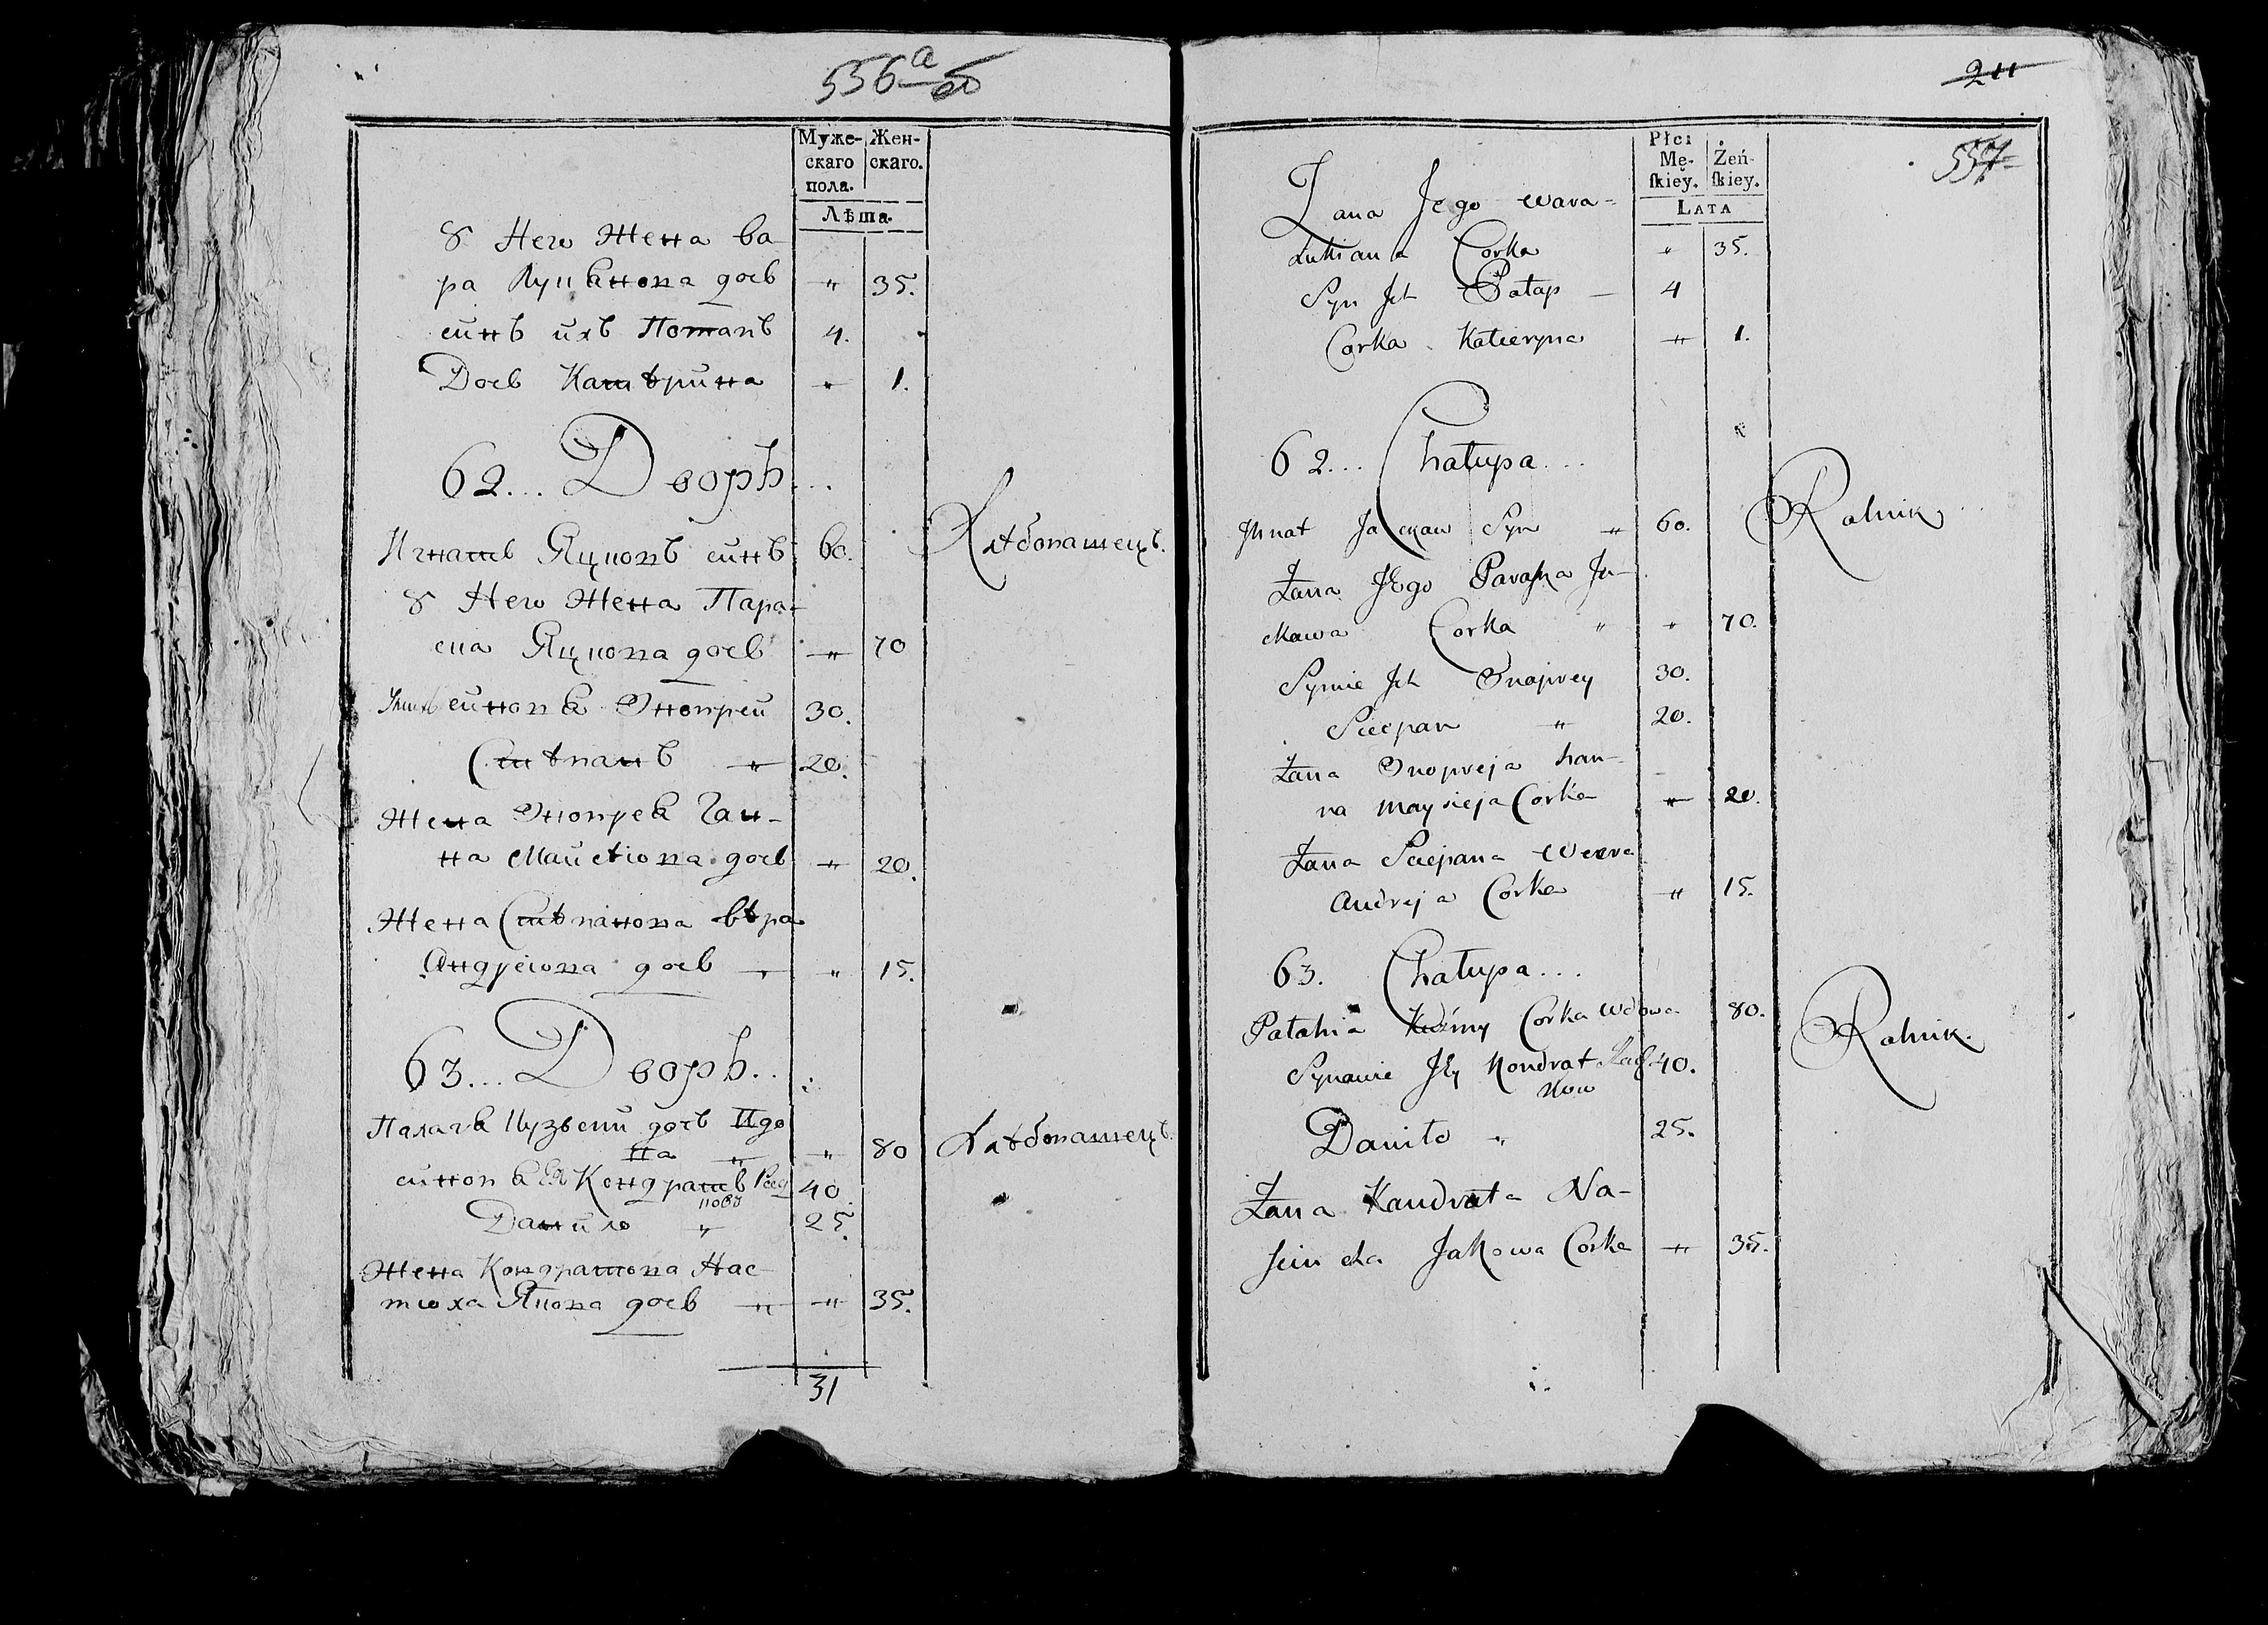 556 а об
Муже- Жен-
скаго скаго.
пола.
Лѣта.
8 Него Жена ва
ра Лукянова дочь " 35.
синъ ихъ Потапъ 4.
Дочь Катѣрина " 1.
62... Дворъ...
Игнатъ Яцковъ синъ 60. Хлѣбопашецъ.
8 Него Жена Пара-
ска Яцкова дочь " 70
синовя Энопрей 30.
Стѣпанъ " 20.
Жена Энопрея Ган-
на Майсѣюва дочь " 20.
Жена Стѣпанова вѣра
Андреюва дочь " " 15.
63... Дворъ...
Палагя Кузьеми дочь Вдо
ва " " 80 Хлѣбопашецъ.
синовя Ея Кондратъ 40.
Данило " 25.
Жена Кондратова Нас-
тюха Якова дочь " " 35.
31
211
557
Płci
Mę- Żeń-
ſkiey. ſkiey.
LATA
Żana Jego Wara-
Łukiana Corka " 35.
Syn Jch Patap — 4
Corka Katieryna " 1.
62... Chałupa...
Jhnat Jackaw Syn " 60. Rolnik
Żana JEgo Paraſka Ja-
ckawa Corka " " 70.
Synwie Jch Gnoprey 30.
Sciepan " 20.
Żana Gnopreja Han-
na Maysieja Corka " 20.
Żana Sciepana Wera
Andreja Corka " 15.
63. Chałupa...
Patahia Kuźmy Corka Wdowa 80. Rolnik.
Synawie JEy Kondrat 40.
Daniło " 25.
Żana Kandrata Na-
ſciucha Jakowa Corka " 35.